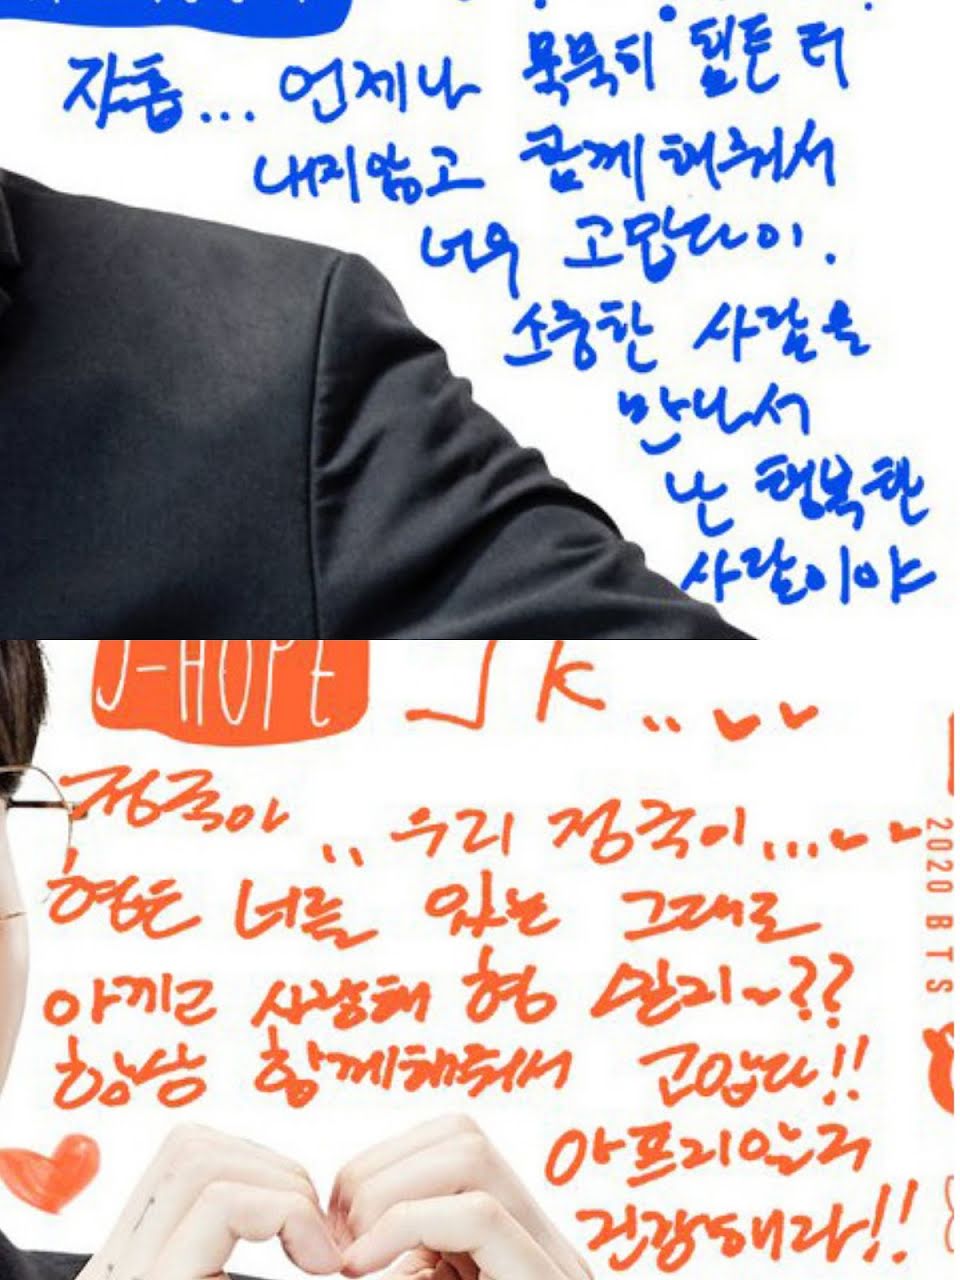 작품... 언제나 묵묵히 힘든 티
내지않고 함께 해줘서
너무 고맙다이.
소중한 사람을
만나서
난 행복한
사람이야
J-HOPE JK..
정국아.. 우리 정국이...
형은 너를 있는 그대로
아끼고 사랑해 형 알지~??
항상 함께해줘서 고맙다!!
아프지말구
건강해라!!
2020 BTS